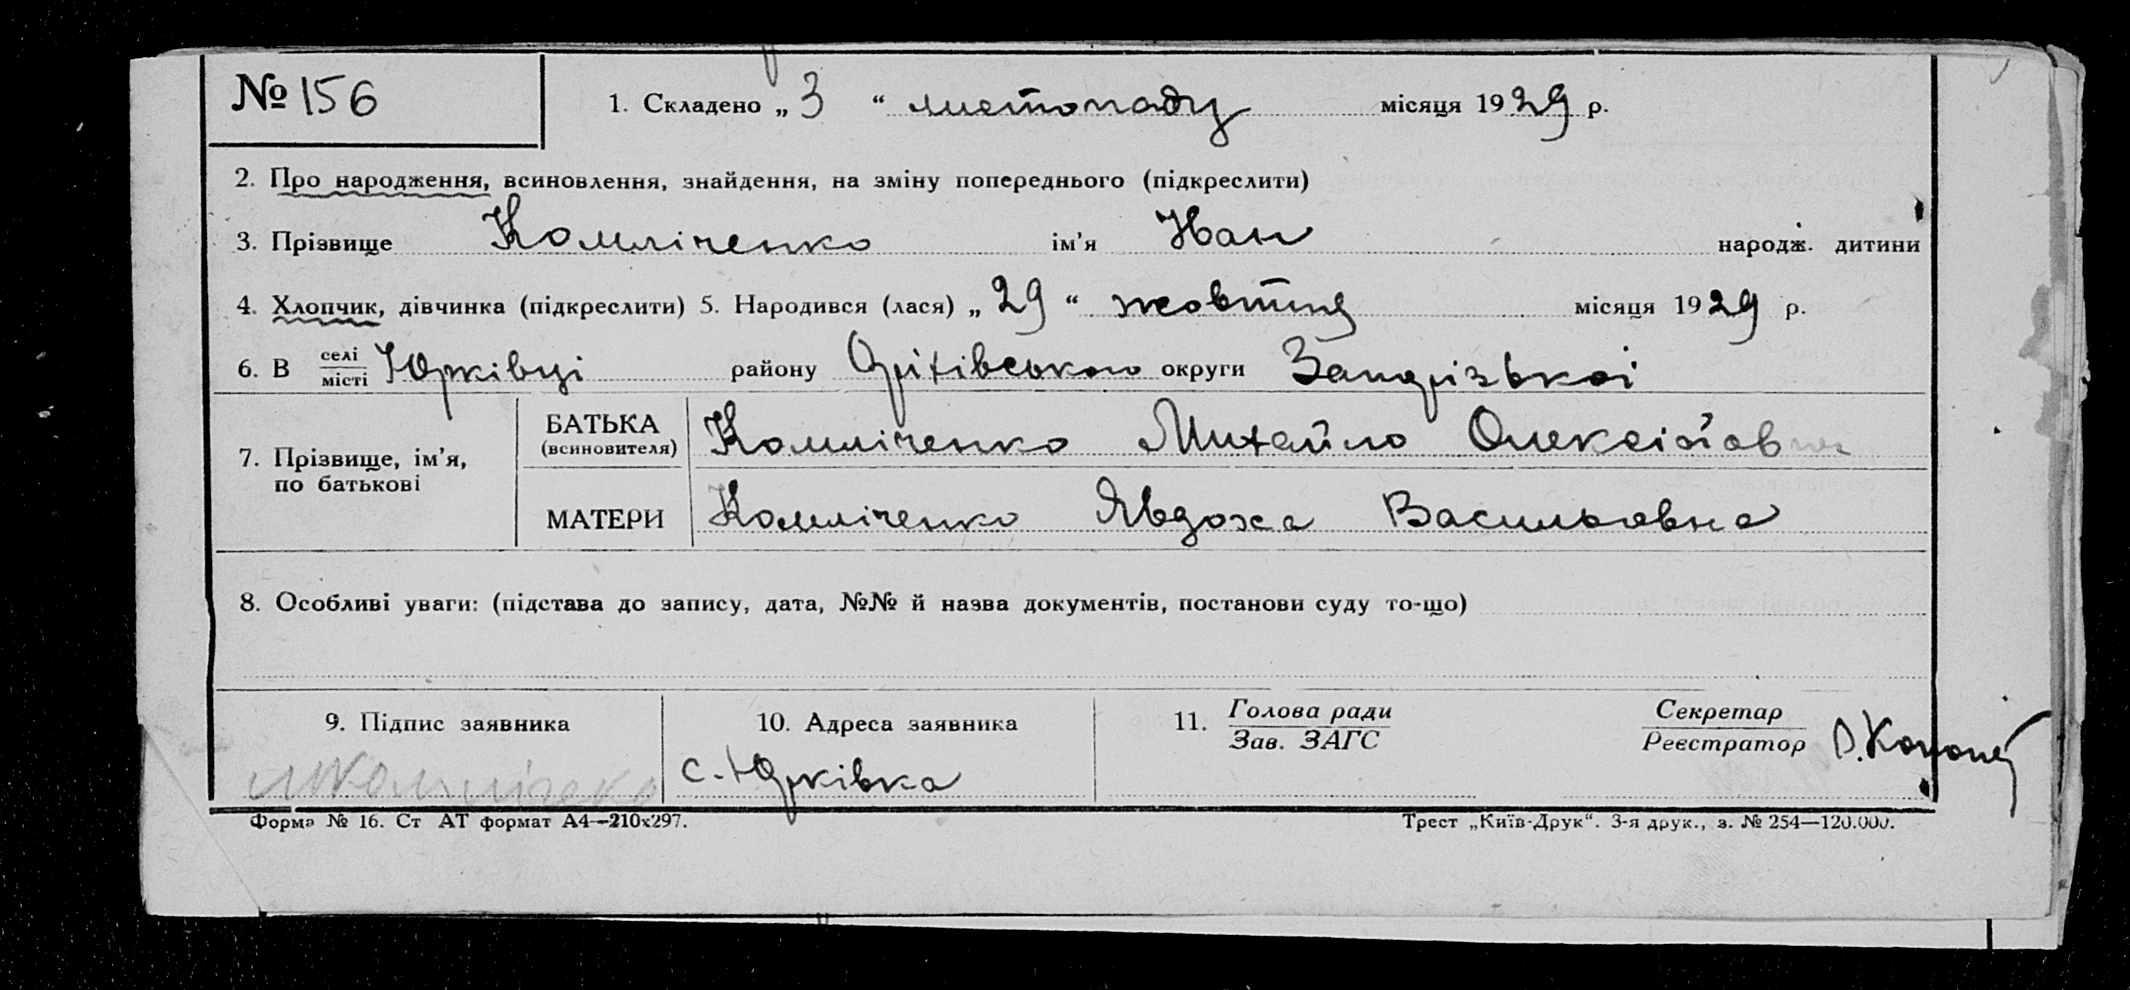 № 156
1. Складено „ 3 “ листопаду місяця 1929 р.
2. Про народження, всиновлення, знайдення, на зміну попереднього (підкреслити)
3. Прізвище Комліченко ім’я Иван народж. дитини
4. Хлопчик, дівчинка (підкреслити) 5. Народився (лася) „ 29 “ жовтня місяця 1929 р.
6. В селі/місті Юрківці району Оріхівського округи Запорізької
7. Прізвище, ім’я, по батькові
БАТЬКА (всиновителя) Комліченко Михайло Олексійович
МАТЕРИ Комліченко Явдоха Васильовна
8. Особливі уваги: (підстава до запису, дата, №№ й назва документів, постанови суду то-що)
9. Підпис заявника
10. Адреса заявника
с. Юрківка
11. Голова ради
Зав. ЗАГС
Секретар
Реєстратор
Форма № 16. Ст АТ формат А4—210х297.
Трест „Київ-Друк“. 3-я друк., з. № 254—120.000.